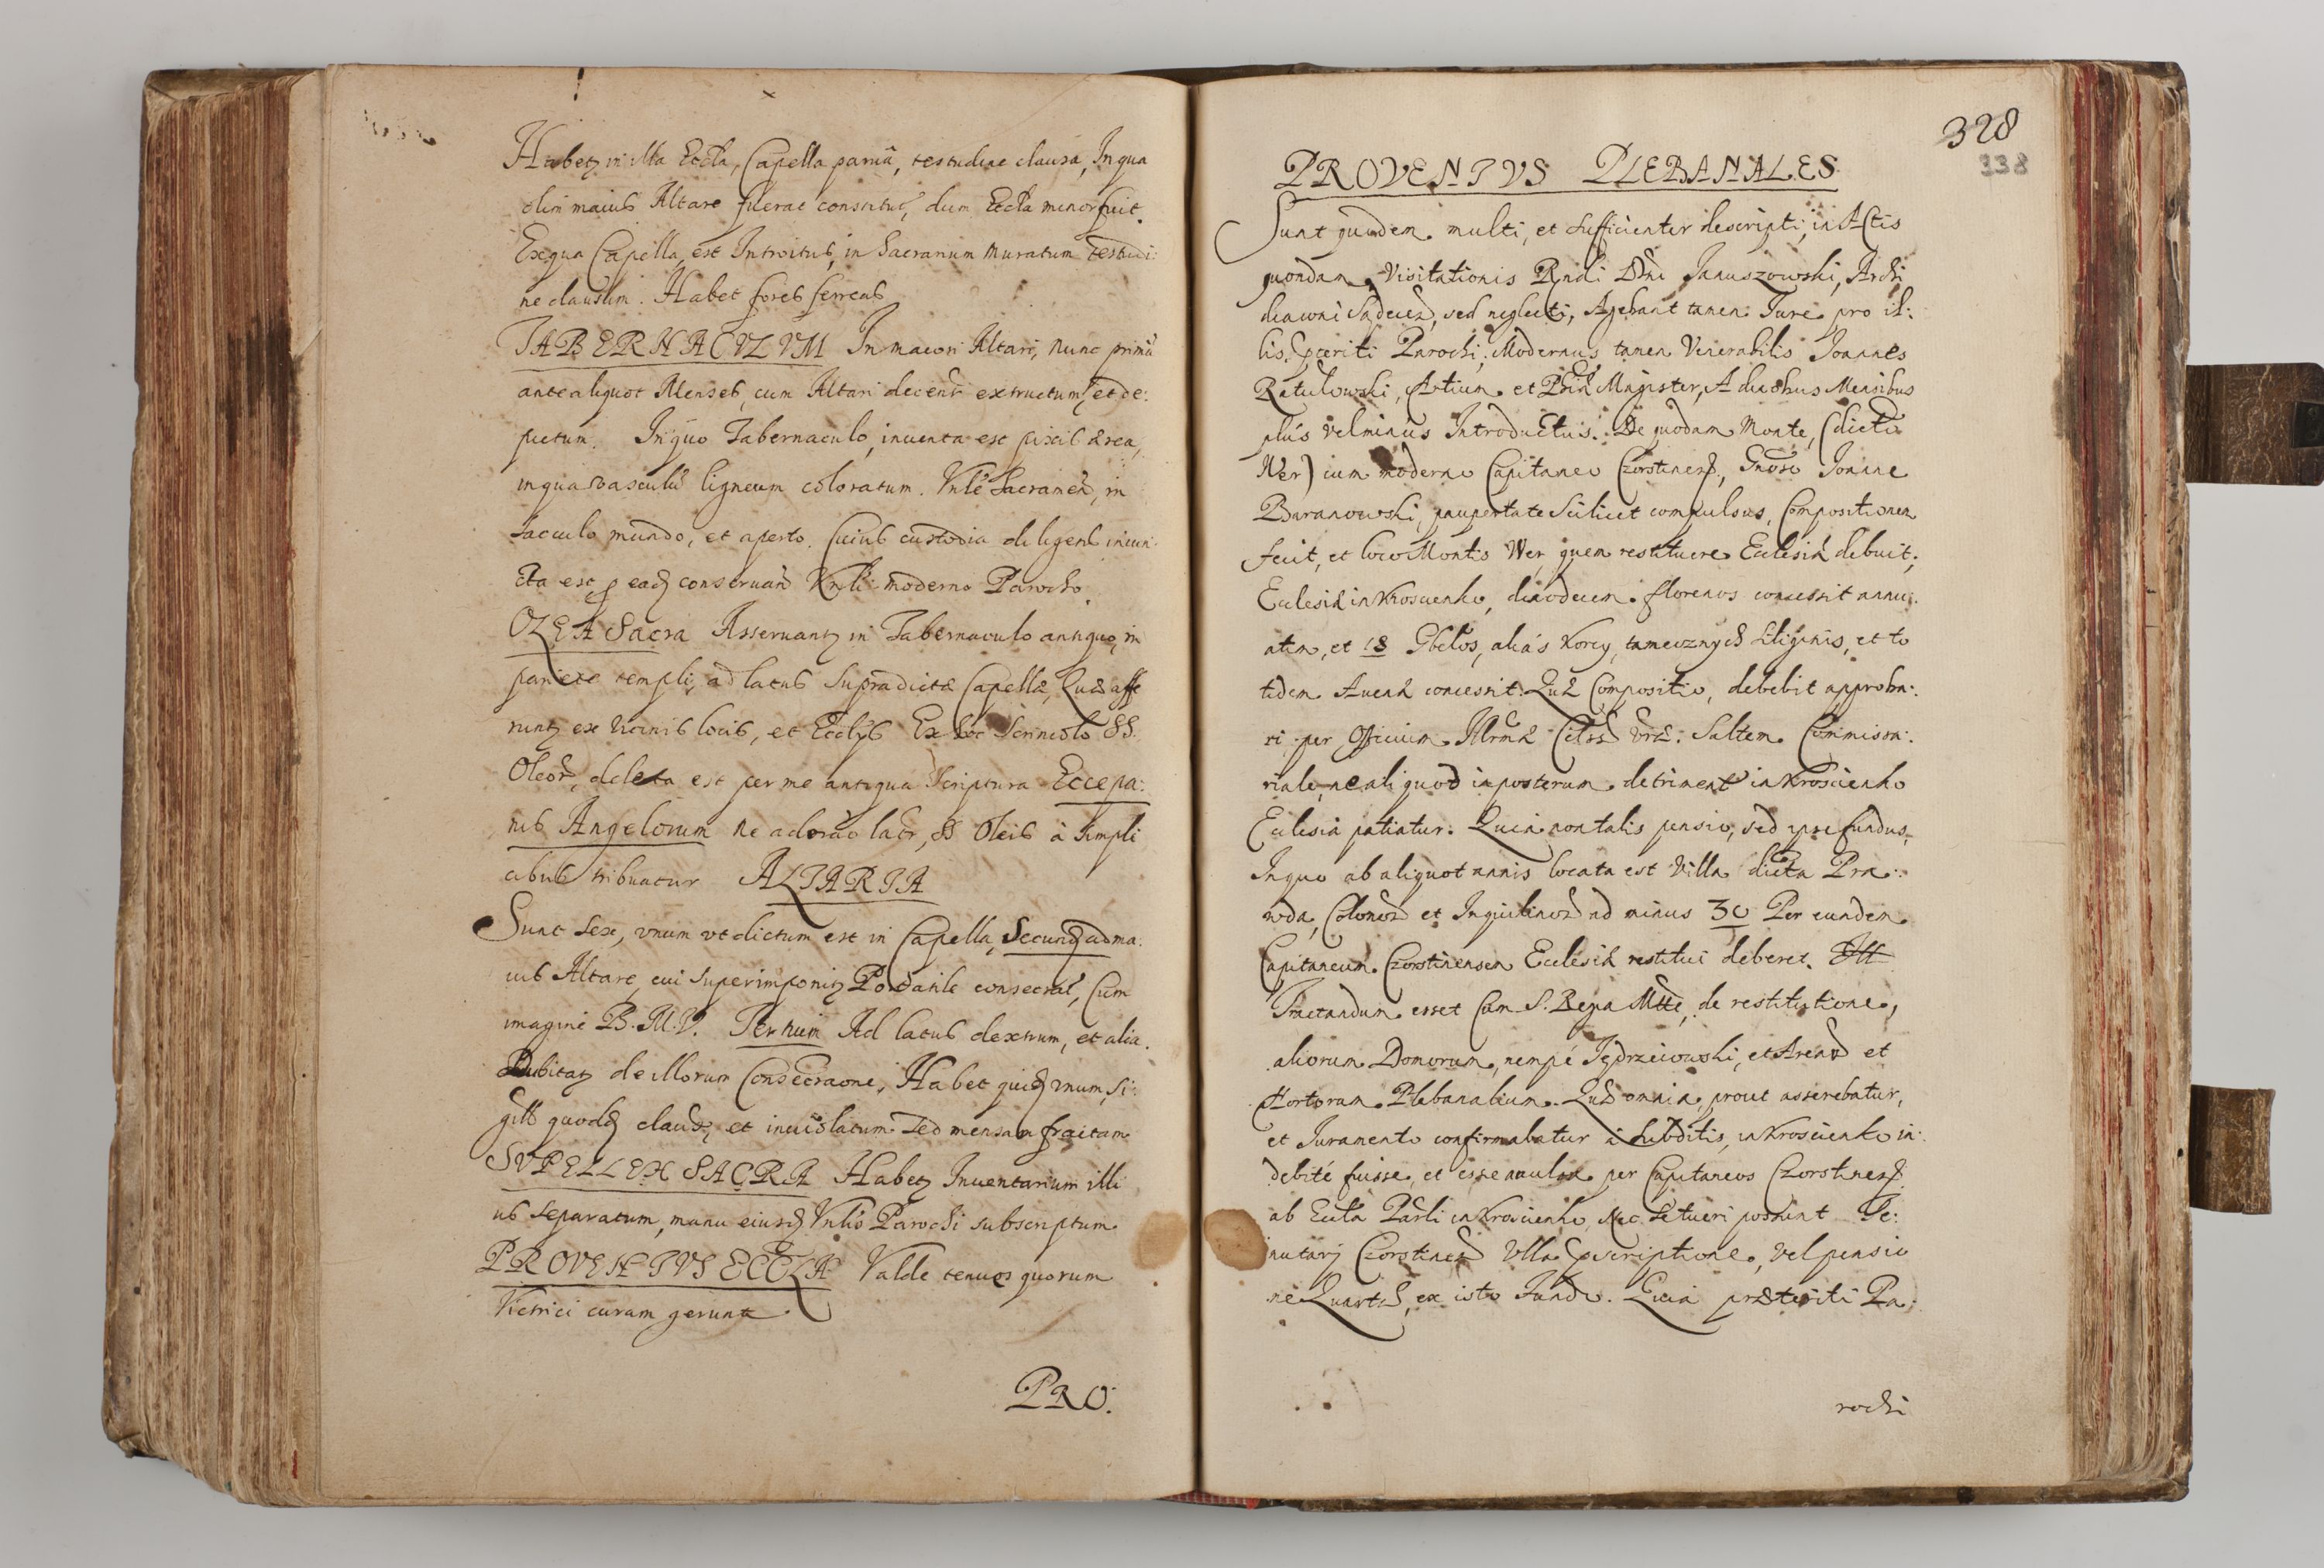 Habetz in illa Eccla, Capella parua, testudine clausa, In qua
olim maius Altare fuerat constitut, dum Eccla minor fuit.
Ex qua Capella, est Introitus, in Sacrarium muratum testudi:
ne clausum. Habet fores ferreas
TABERNACVLVM In maiori Altari, nunc primū
ante aliquot Menses, cum Altari decenti extructum, et de:
pictum. In quo Tabernaculo, inuenta est pixis ærea,
in qua vasculū ligneum coloratum. Vnle Sacramen, in
sacculo mundo, et aperto. Cuius custodia diligens iniun:
cta est, p ead conseruand Vnli moderno Parocho.
OLEA Sacra Asseruantz in Tabernaculo antiquo, in
pariete templi, ad latus supradictæ Capellæ, Quæ affe
runtz ex vicinis locis, et Ecclijs Ex hoc Scriniolo SS.
Oleor, deleta est per me antiqua Scriptura Ecce pa:
nis Angelorum ne adorao latr, SS Oleis à simpli
cibus tribuatur ALTARIA
Sunt sex, vnum vt dictum est in Capella, Secund ad ma:
ius Altare, cui superimponitz Portatile consecrat, Cum
imagine B. M. V. Tertium Ad latus dextrum, et alia.
Dubitatz de illorum Consecraone, Habet quid vnum, si:
gill quodd claus, et inuiolatum sed mensam fractam
SVPELLEX SACRA Habetz Inuentarium illi
us separatum, manu eiusd Vnlis Parochi subscriptum
PROVENTVS ECCLÆ Valde tenues quorum
Vitrici curam gerunt
PRO.
328
338
PROVENTVS PLEBANALES
Sunt quidem multi, et sufficienter descripti, in Actis
quondam Visitationis Rndi Dni Januszowski, Archi
diaconi Sądecen, sed neglecti, Agebant tamen Jure pro il:
lis, præteriti Parochi. Modernus tamen Venerabilis Joannes
Ratułowski, Artium et Phiæ Magister, A duobus Mensibus
plus vel minus Introductus. De quodam Monte, (dicto
Wer) cum moderno Capitaneo Czorstinen, Gnoso Joanne
Baranowski, paupertate scilicet compulsus, Compositionem
fecit, et loco Montis Wer, quem restituere Ecclesiæ debuit,
Ecclesiæ in Kroscienko, duodecem florenos concessit annu:
atim, et 18 Gbelos, aliàs Korcy, tamecznych siliginis, et to
tidem Auenæ concessit. Quæ Compositio, debebit approba:
ri per Officium Illrmæ Cels Vræ. Saltem Commissa:
riale, ne aliquod imposterum detriment in Krosicienko
Ecclesia patiatur. Quia non talis pensio, sed ipse fundus,
In quo ab aliquot annis locata est Villa dicta Pra:
wda, Colonor et Inquilinor ad minus 30 Per eundem
Capitaneum Czorstinensem Ecclesiæ restitui deberet. Itt
Tractandum esset Cum S. Regia Mtte, de restitutione,
aliorum Domorum, nempè Jędrzeiowski, et Arenæ et
Hortorum Plebanalium. Quæ omnia, prout asserebatur,
et Juramento confirmabatur à Subditis, in Kroscienko in:
debitè fuisse, et esse auulsa per Capitaneos Czorstinen
ab Eccla Parli in Kroscienko, Nec se tueri possunt Te:
nutarij Czorstinen Vlla præscriptione, vel pensio
ne Quartæ, ex isto Fundo. Quia præteriti Pa:
rochi